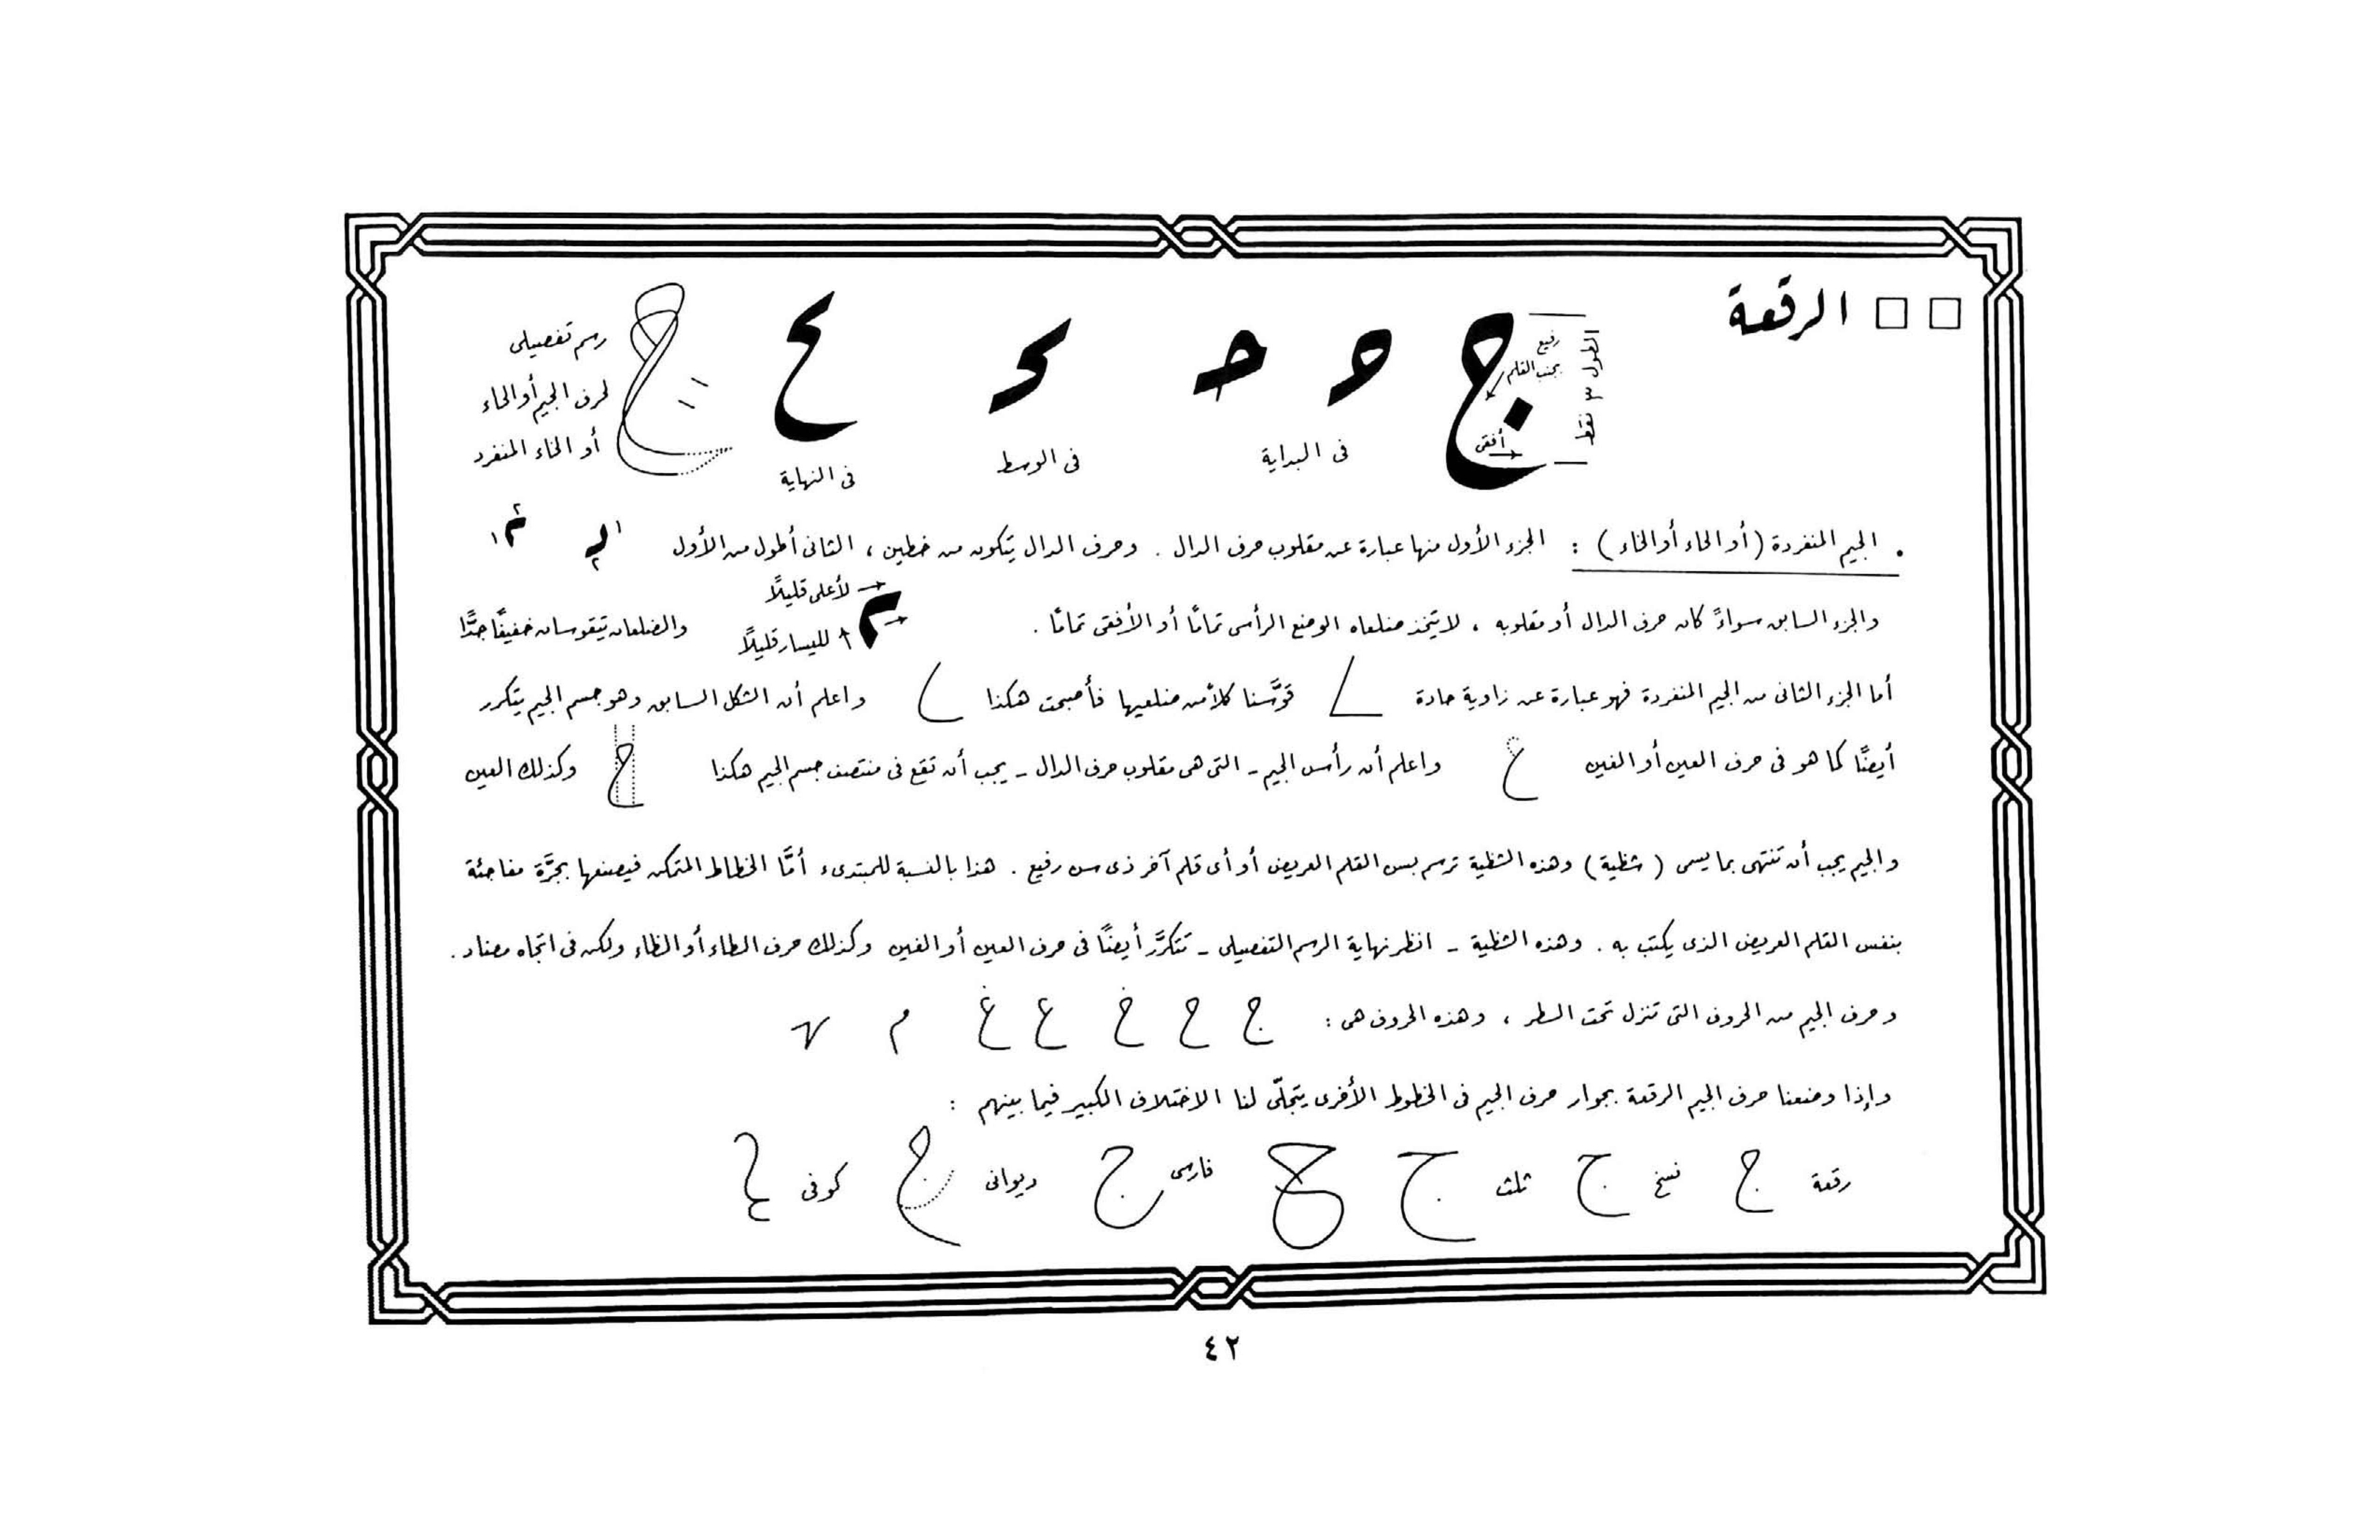 الرقعة
الطول ٣ نقط
رفيع
بجنب القلم
أفقى
ج
فى البداية
فى الوسط
فى النهاية
رسم تفصيلى
لحرف الجيم أو الحاء
أو الخاء المنفرد
. الجيم المنفردة (أو الحاء أو الخاء) : الجزء الأول منها عبارة عن مقلوب حرف الدال . وحرف الدال يتكون من خطين ، الثانى أطول من الأول ١ ٢ ١ ٢
والجزء السابق سواءً كان حرف الدال أو مقلوبه ، لا يتخذ ضلعاه الوضع الرأسى تمامًا أو الأفقى تمامًا . لأعلى قليلًا لليسار قليلًا والضلعان يتقوسان خفيفًا جدًّا
أما الجزء الثانى من الجيم المنفردة فهو عبارة عن زاوية حادة قوَّسنا كلاًّ من ضلعيها فأصبحت هكذا واعلم أن الشكل السابق وهو جسم الجيم يتكرر
أيضًا كما هو فى حرف العين أو الغين ع واعلم أن رأس الجيم - التى هى مقلوب حرف الدال - يجب أن تقع فى منتصف جسم الجيم هكذا ح وكذلك العين
والجيم يجب أن تنتهى بما يسمى (شظية) وهذه الشظية ترسم بسن القلم العريض أو أى قلم آخر ذى سن رفيع . هذا بالنسبة للمبتدىء أمَّا الخطاط المتمكن فيصنعها بجرَّة مفاجئة
بنفس القلم العريض الذى يكتب به . وهذه الشظية - انظر نهاية الرسم التفصيلى - تتكرَّر أيضًا فى حرف العين أو الغين وكذلك حرف الطاء أو الظاء ولكن فى اتجاه مضاد .
وحرف الجيم من الحروف التى تنزل تحت السطر ، وهذه الحروف هى : ج ح خ ع غ م ه
وإذا وضعنا حرف الجيم الرقعة بجوار حرف الجيم فى الخطوط الأخرى يتجلّى لنا الاختلاف الكبير فيما بينهم :
رقعة ج نسخ ج ثلث ج ح فارسى ج ديوانى ج كوفى ج
٤٢